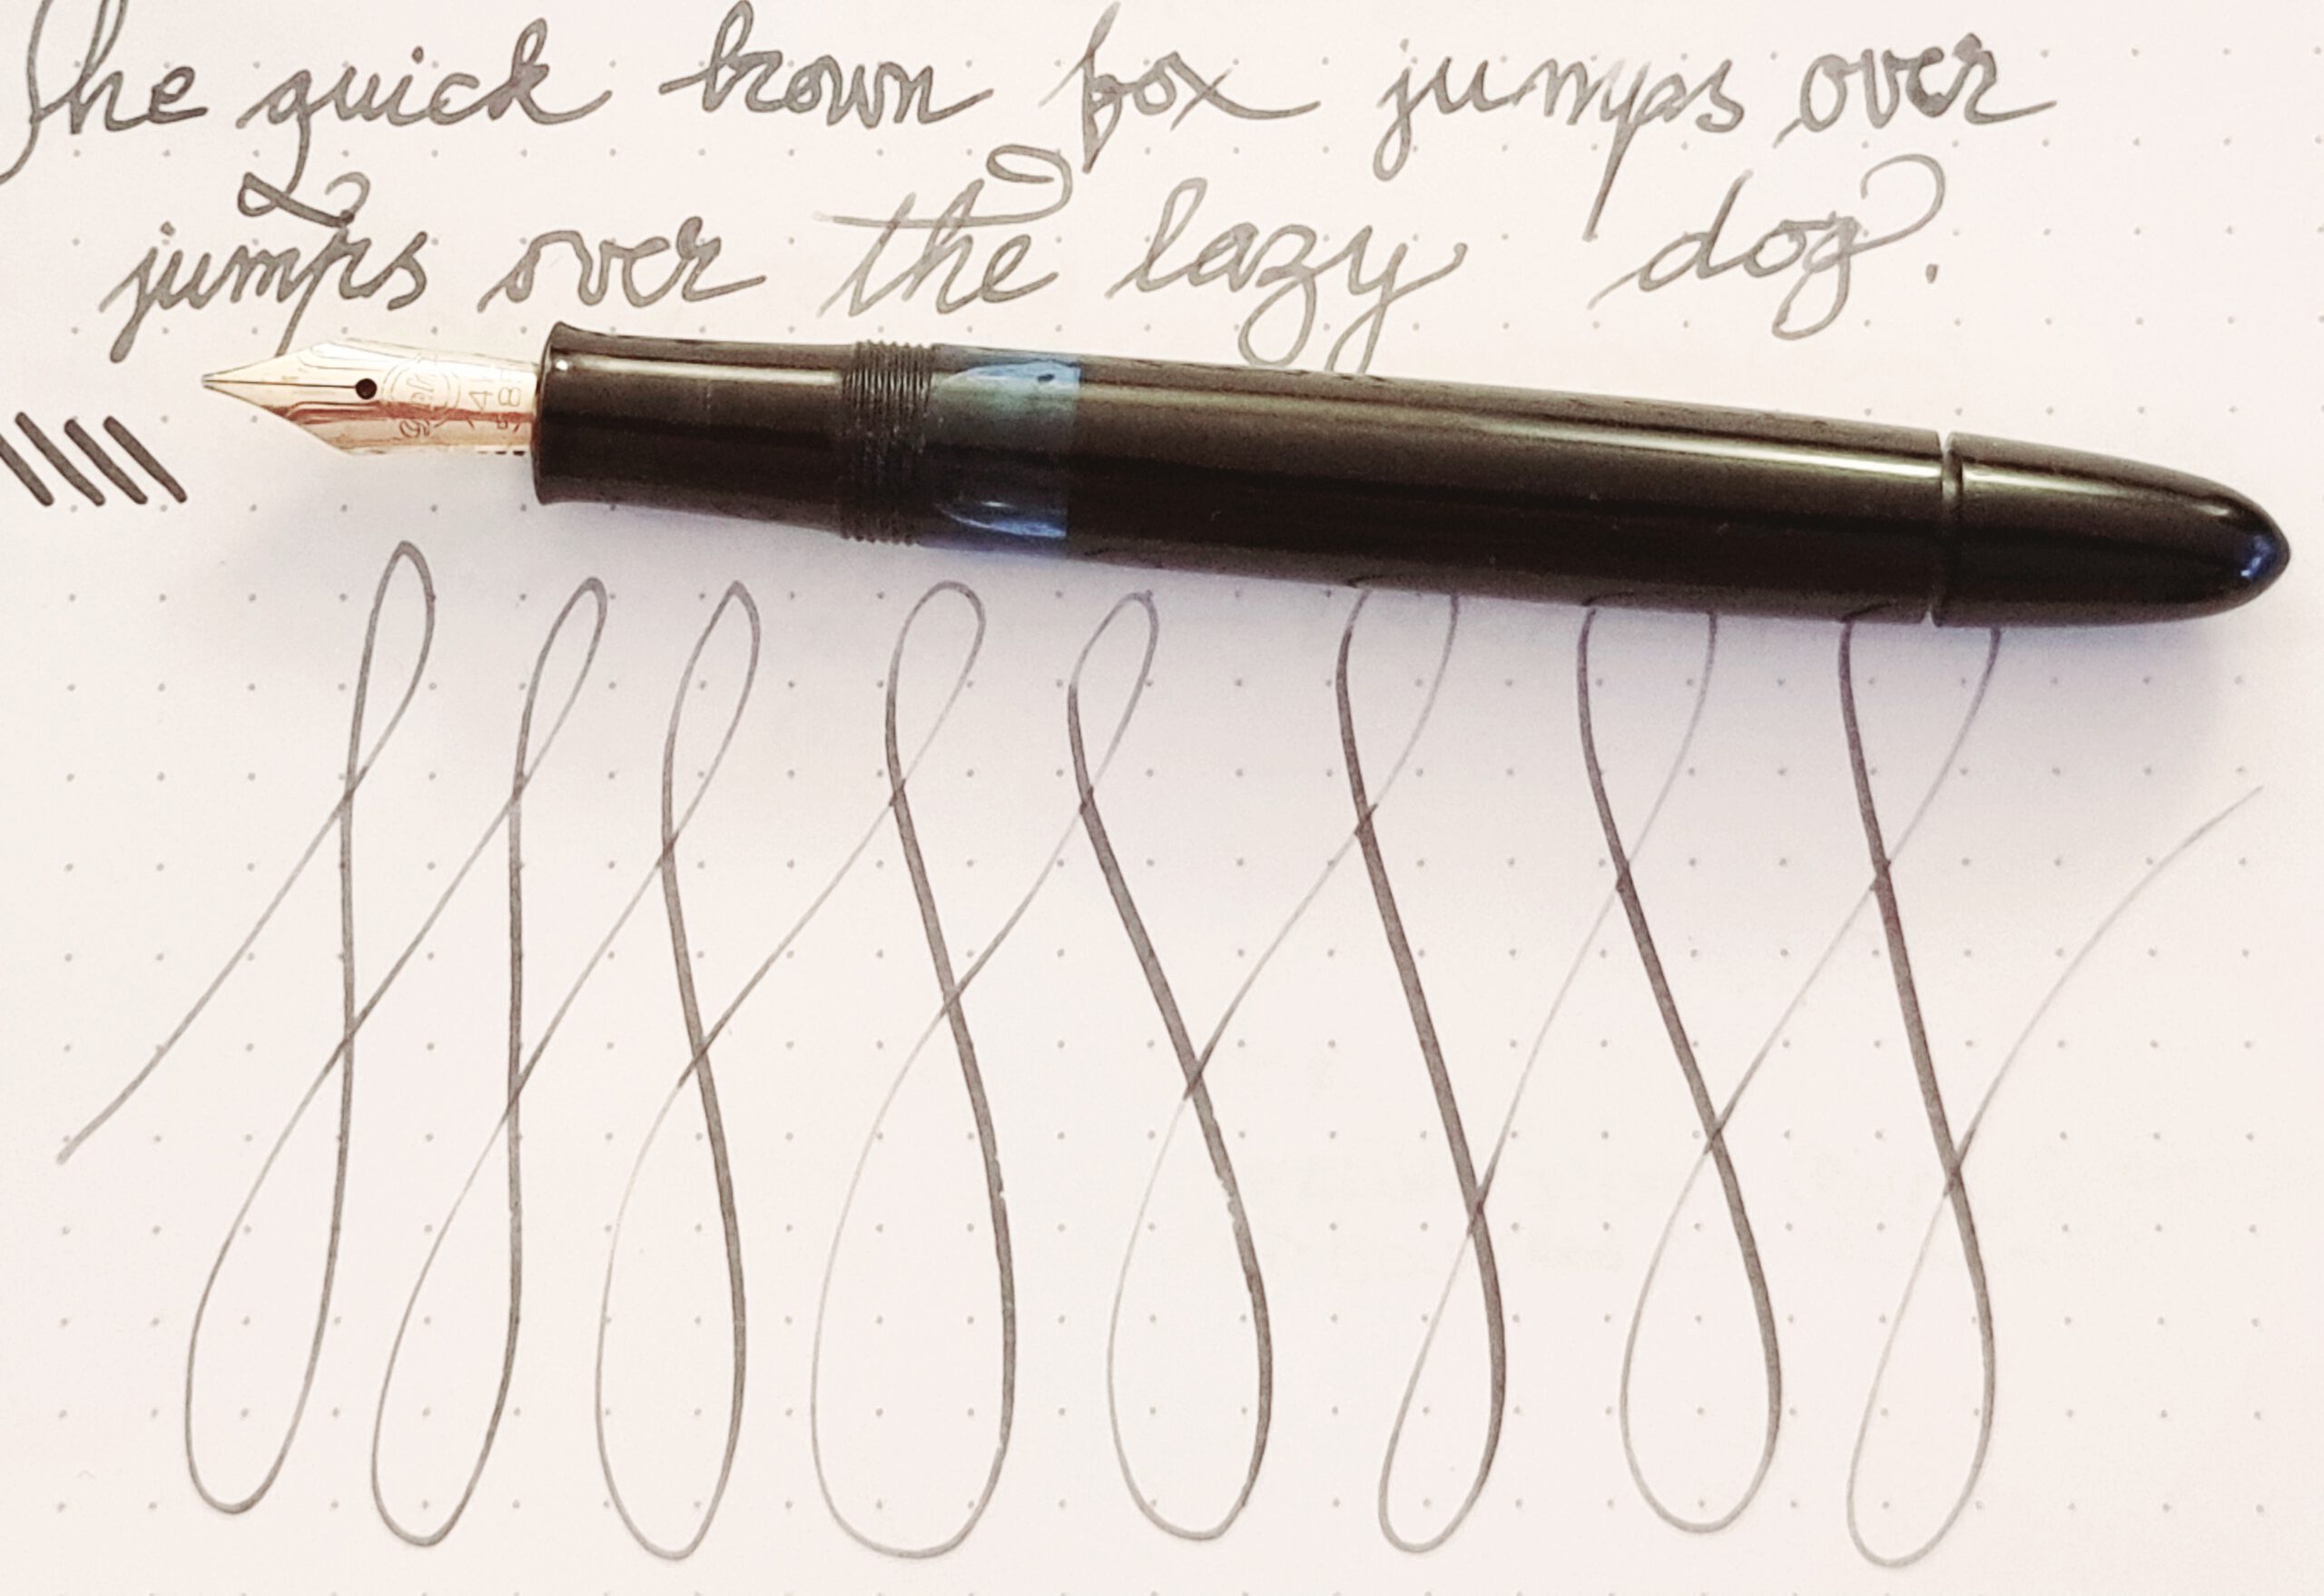 The quick brown fox jumps over
jumps over the lazy dog.
14
585